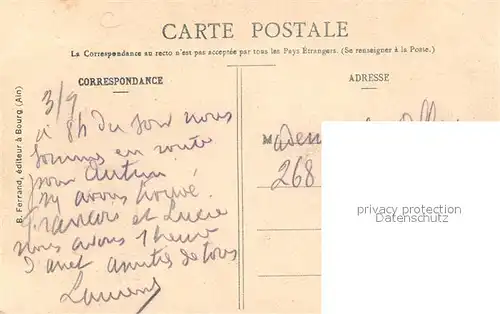 CARTE POSTALE
La Correspondance au recto n'est pas acceptée par tous les Pays Étrangers. (Se renseigner à la Poste.)
CORRESPONDANCE
ADRESSE
B. Ferrand, éditeur à Bourg (Ain)
3/9
à 8h du soir nous
sommes en route
pour Autun
avons trouvé
François et Lucie
nous avons 1 heure
d'arret amitiés de tous
Laurent
Madem
268
privacy protection
Datenschutz